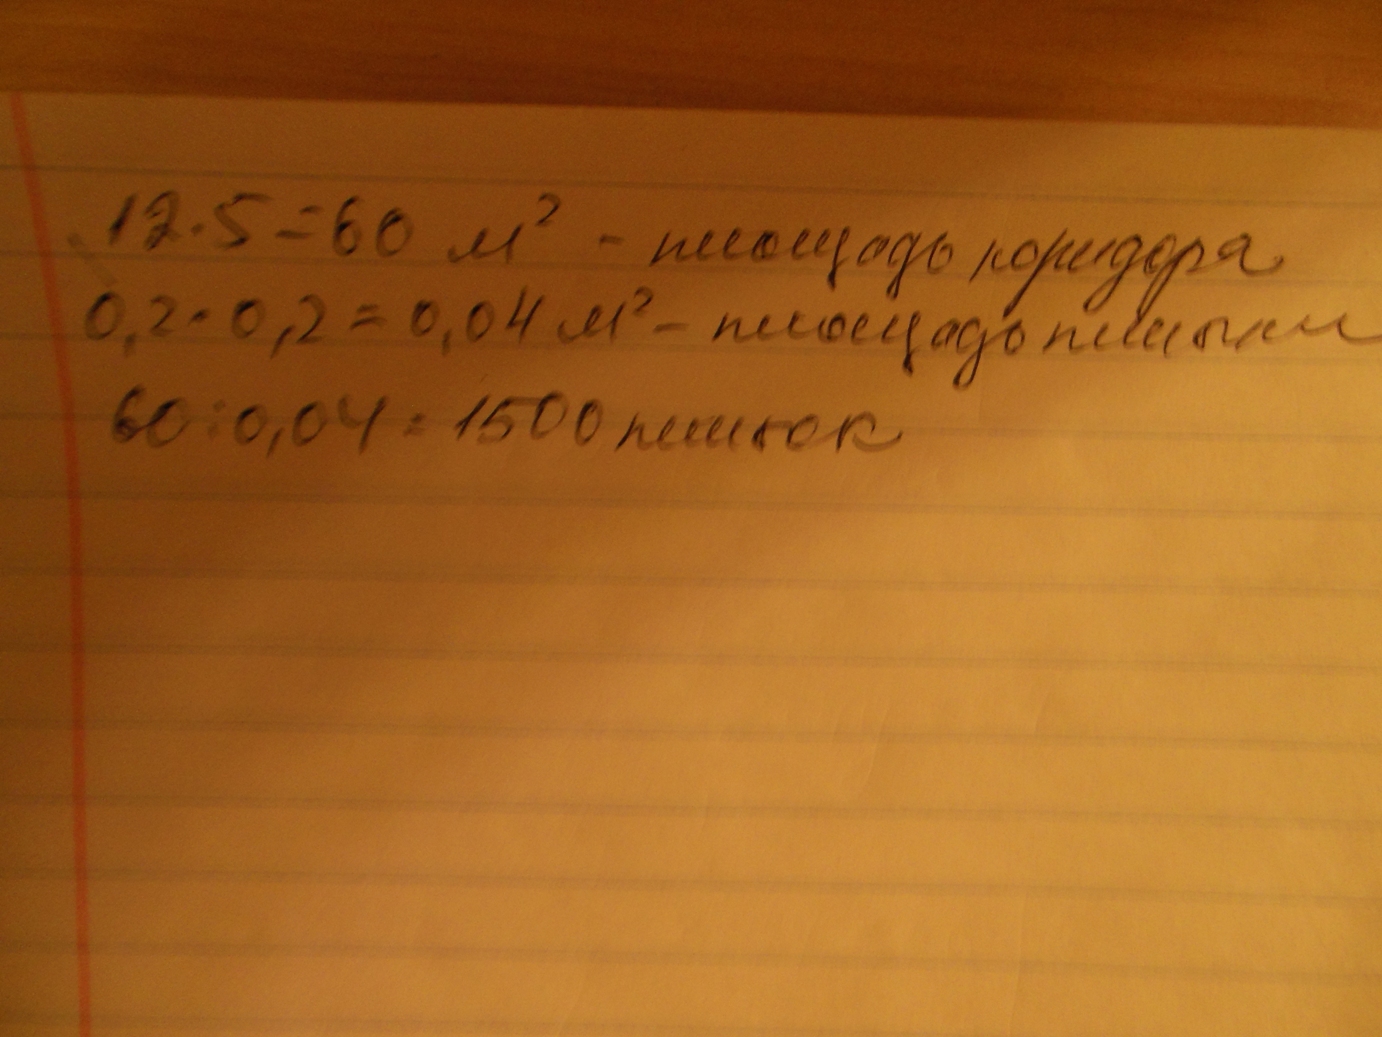 12·5=60 м² - площадь коридора
0,2·0,2=0,04 м² - площадь плитки
60:0,04=1500 плиток